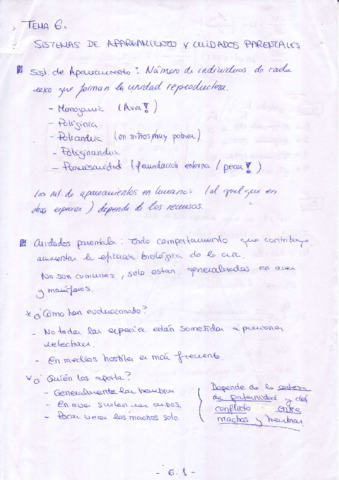 TEMA 6.
SISTEMAS DE APAREAMIENTO Y CUIDADOS PARENTALES
Sist. de Apareamiento: Número de individuos de cada
sexo que forman la unidad reproductora.
- Monogamia (Aves!)
- Poliginia
- Poliandria (en sitios muy pobres)
- Poliginandria
- Promiscuidad (fecundación externa / peces!)
Los sist. de apareamientos en humanos (al igual que en
otras especies) depende de los recursos.
Cuidados parentales: Todo comportamiento que contribuye
aumentar la eficacia biológica de la cría.
No son comunes, solo están generalizados en aves
y mamíferos.
* ¿Cómo han evolucionado?
- No todas las especies están sometidas a presiones
selectivas.
- En medios hostiles es más frecuente
* ¿Quién los aporta?
- Generalmente las hembras
- En aves suelen ser ambos.
- Pocas veces los machos solo
Depende de la certeza
de paternidad y del
conflicto entre
machos y hembras
- 6.1 -